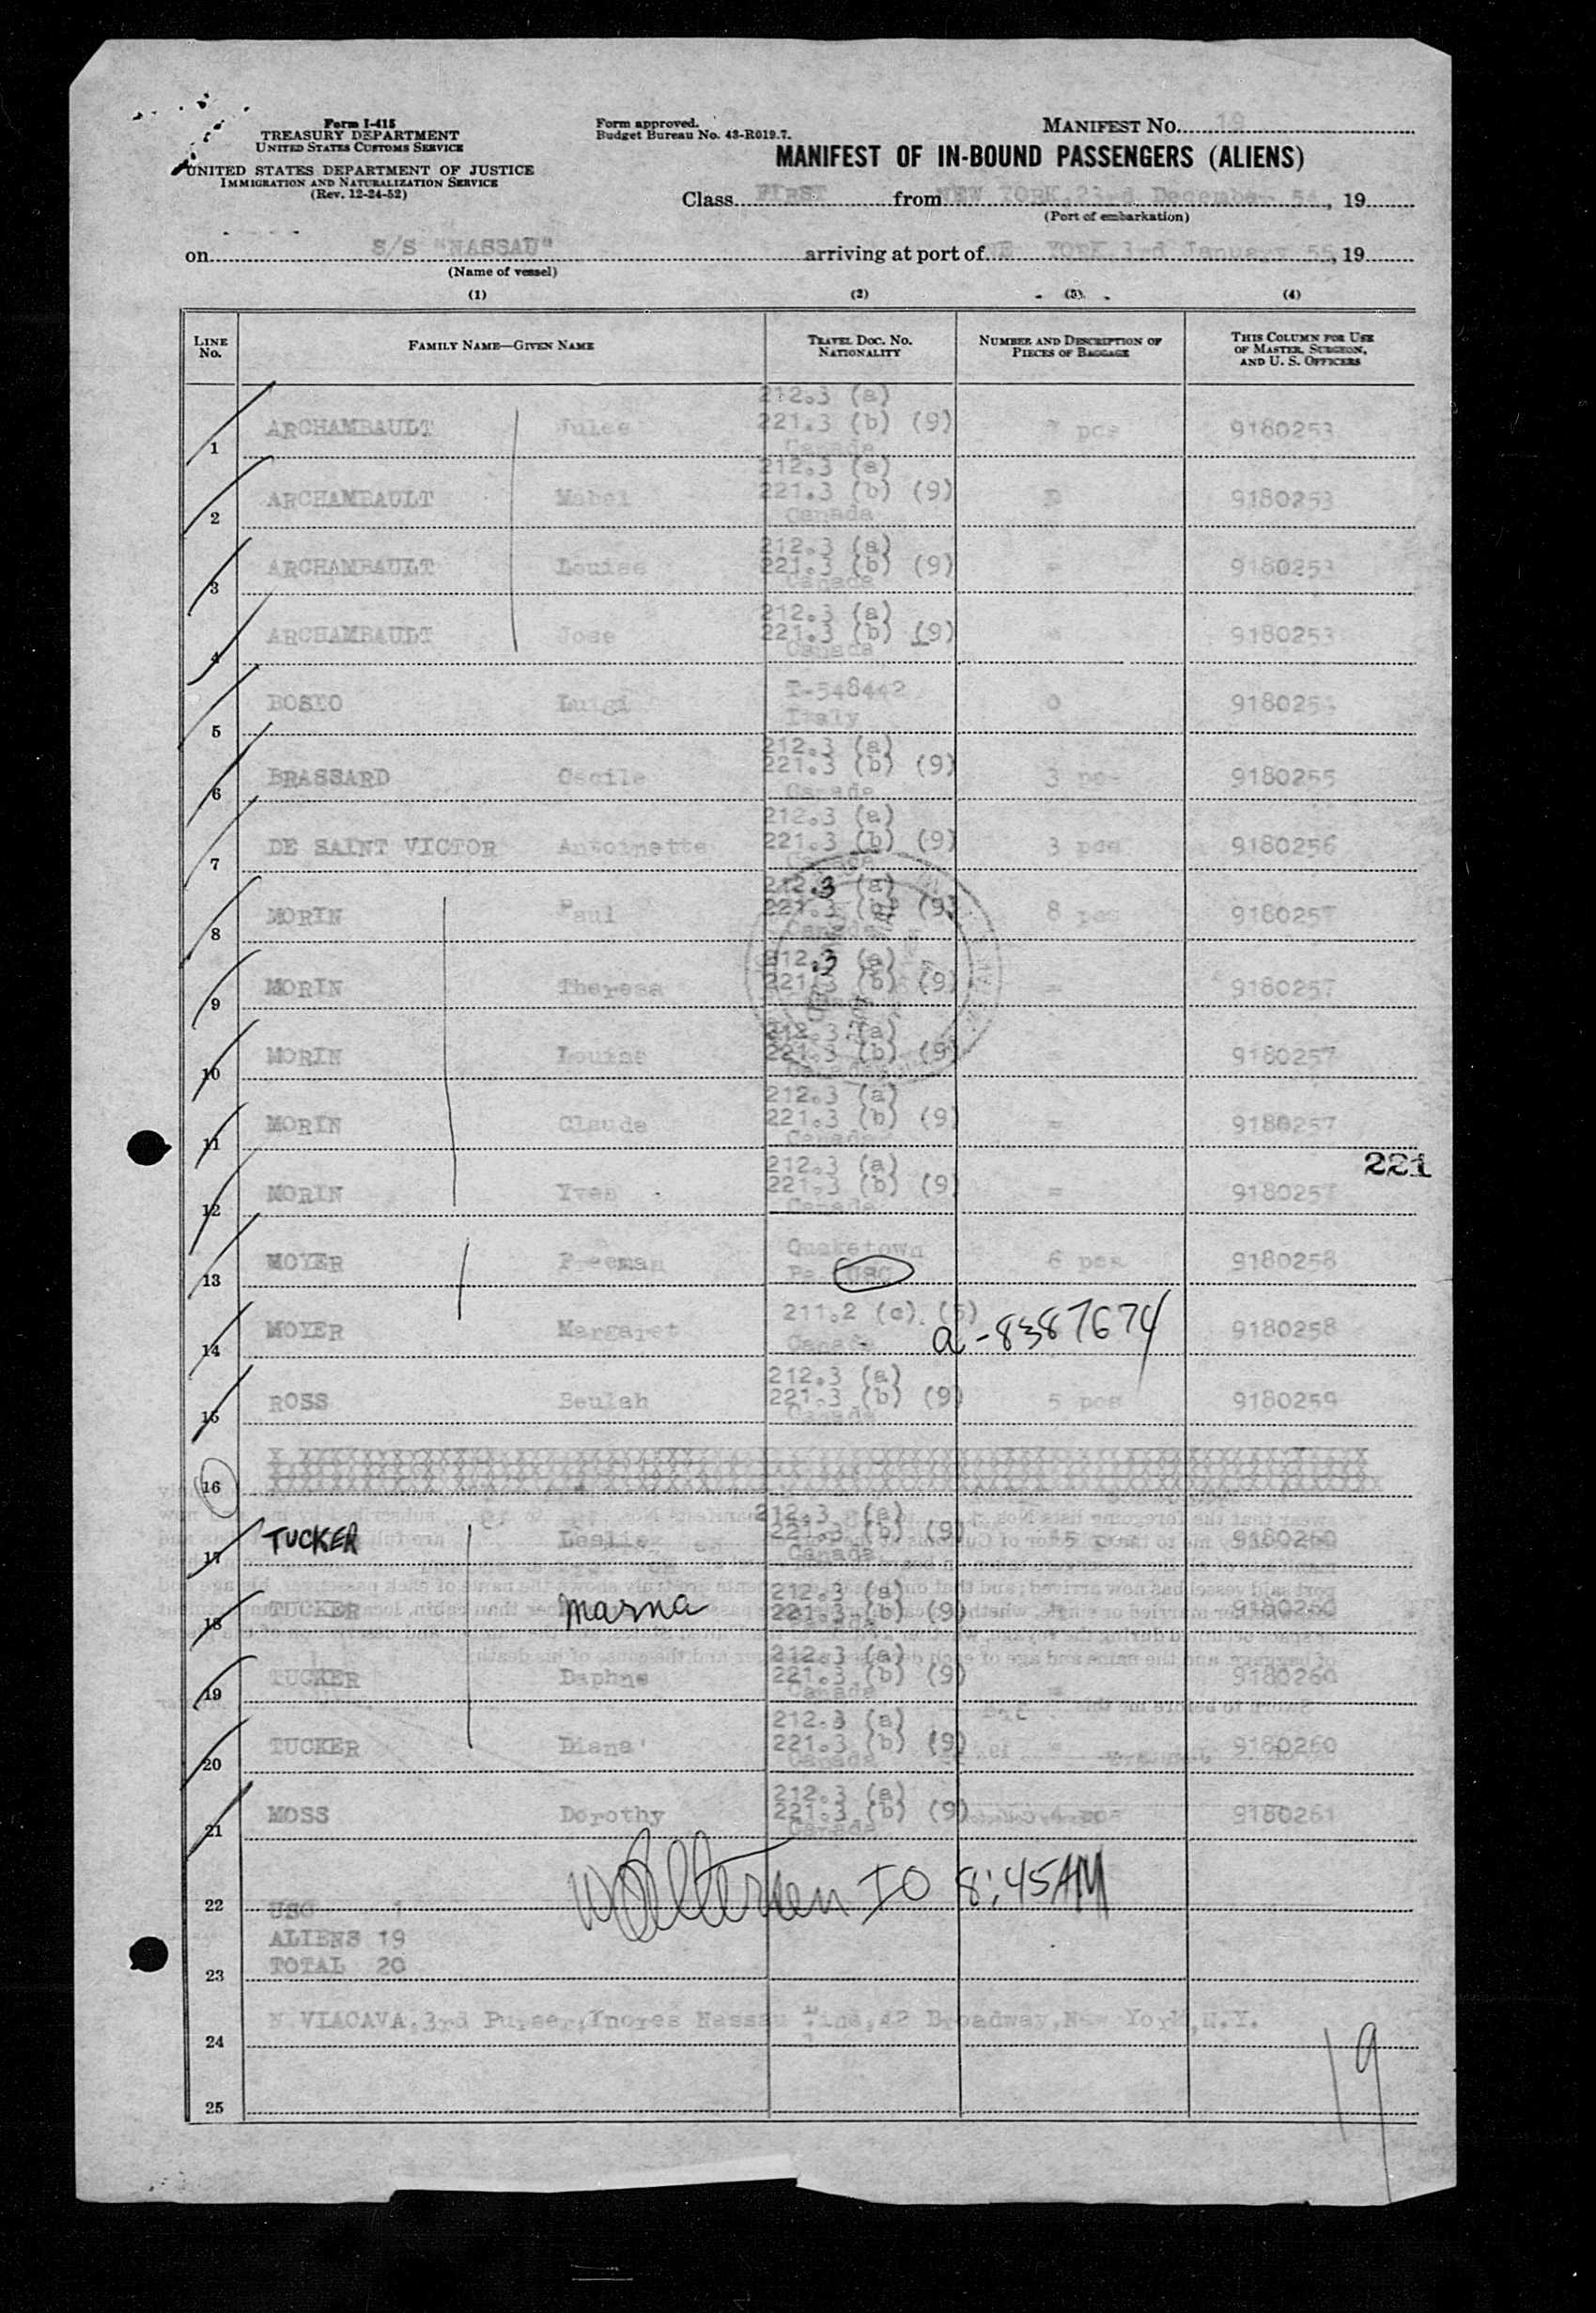 Form I-415
TREASURY DEPARTMENT
UNITED STATES CUSTOMS SERVICE
UNITED STATES DEPARTMENT OF JUSTICE
IMMIGRATION AND NATURALIZATION SERVICE
(Rev. 12-24-52)
Form approved.
Budget Bureau No. 43-R019.7.
MANIFEST No. 19
MANIFEST OF IN-BOUND PASSENGERS (ALIENS)
Class FIRST from NEW YORK, 23rd December 54, 19
(Port of embarkation)
on S/S "NASSAU" arriving at port of YORK 3rd January 55, 19
(Name of vessel)
(1) (2) (3) (4)
LINE No. FAMILY NAME—GIVEN NAME TRAVEL DOC. No. NATIONALITY NUMBER AND DESCRIPTION OF PIECES OF BAGGAGE THIS COLUMN FOR USE OF MASTER, SURGEON, AND U. S. OFFICERS
212.3 (a)
1 ARCHAMBAULT Jules 221.3 (b) (9) pcs 9180253
Canada
212.3 (a)
2 ARCHAMBAULT Mabel 221.3 (b) (9) 9180253
Canada
212.3 (a)
3 ARCHAMBAULT Louise 221.3 (b) (9) = 9180253
Canada
212.3 (a)
4 ARCHAMBAULT Jose 221.3 (b) (9) = 9180253
Canada
5 BOSIO Luigi T-548442 0 918025
Italy
212.3 (a)
6 BRASSARD Cecile 221.3 (b) (9) 3 pcs 9180255
Canada
212.3 (a)
7 DE SAINT VICTOR Antoinette 221.3 (b) (9) 3 pcs 9180256
Canada
212.3 (a)
8 MORIN Paul 221.3 (b) (9) 8 pcs 9180257
Canada
212.3 (a)
9 MORIN Theresa 221.3 (b) (9) = 9180257
Canada
212.3 (a)
10 MORIN Louise 221.3 (b) (9) = 9180257
Canada
212.3 (a)
11 MORIN Claude 221.3 (b) (9) = 9180257
Canada
221
212.3 (a)
12 MORIN Yves 221.3 (b) (9) = 9180257
Canada
13 MOYER Freeman Quaketown 6 pcs 9180258
Pa. USC
14 MOYER Margaret 211.2 (c) (5) a-8387674 9180258
Canada
212.3 (a)
15 ROSS Beulah 221.3 (b) (9) 5 pcs 9180259
Canada
16
212.3 (a)
17 TUCKER Leslie 221.3 (b) (9) 9180260
Canada
212.3 (a)
18 TUCKER Marna 221.3 (b) (9) 9180260
Canada
212.3 (a)
19 TUCKER Daphne 221.3 (b) (9) = 9180260
Canada
212.3 (a)
20 TUCKER Diana 221.3 (b) (9) = 9180260
Canada
212.3 (a)
21 MOSS Dorothy 221.3 (b) (9) pcs 9180261
Canada
IO 8:45AM
22 USC 1
ALIENS 19
23 TOTAL 20
N. VIACAVA, 3rd Purser, Incres Nassau Line, 42 Broadway, New York, N.Y.
24
19
25